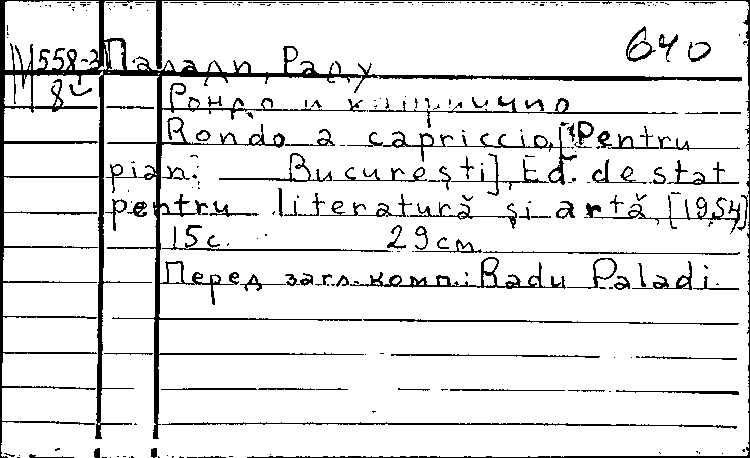 640
М 558-3 Палади, Раду
8
Рондо и каприччио
Rondo a capriccio, [Pentru
pian. — București], Ed. de stat
pentru literatură și artă, [1954]
15 с. 29 см.
Перед загл. комп.: Radu Paladi.